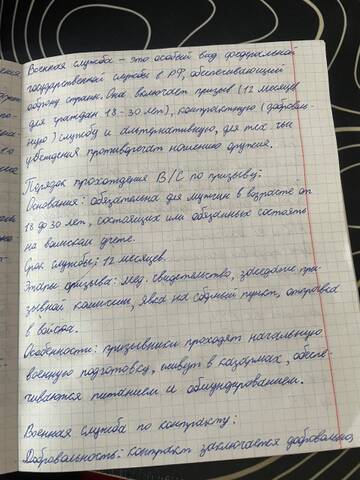 Военная служба – это особый вид федеральной
государственной службы в РФ, обеспечивающий
оборону страны. Она включает призыв (12 месяцев
для граждан 18-30 лет), контрактную (доброволь-
ную) службу и альтернативную, для тех чьи
убеждения противоречат ношению оружия.
Порядок прохождения В/С по призыву:
Основания: обязательна для мужчин в возрасте от
18 до 30 лет, состоящих или обязанных состоять
на воинском учете.
Срок службы: 12 месяцев.
Этапы призыва: мед. свидетельство, заседание при-
зывной комиссии, явка на сборный пункт, отправка
в войска.
Особенности: призывники проходят начальную
военную подготовку, живут в казармах, обеспе-
чиваются питанием и обмундированием.
Военная служба по контракту:
Добровольность: контракт заключается добровольно